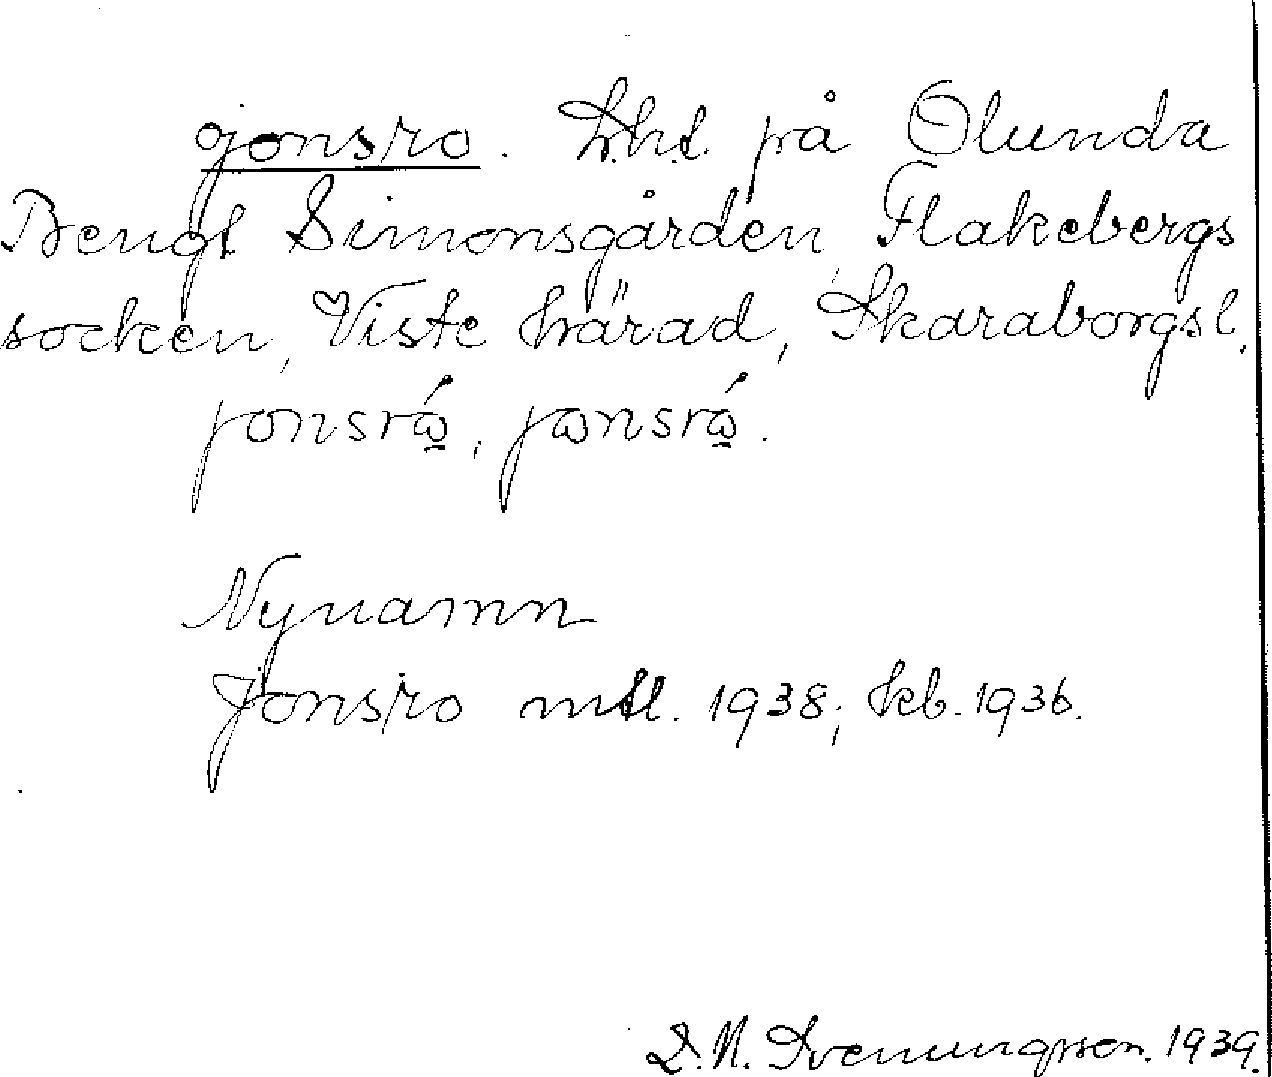 Jonsro. Lht. på Olunda
Bengt Simonsgården, Flakebergs
socken, Viste härad, Skaraborgs l.
jonsrǻ, jonsrǻ.
Nynamn
Jonsro mtl. 1938; kb. 1936.
D. N. Svenungsson. 1939.